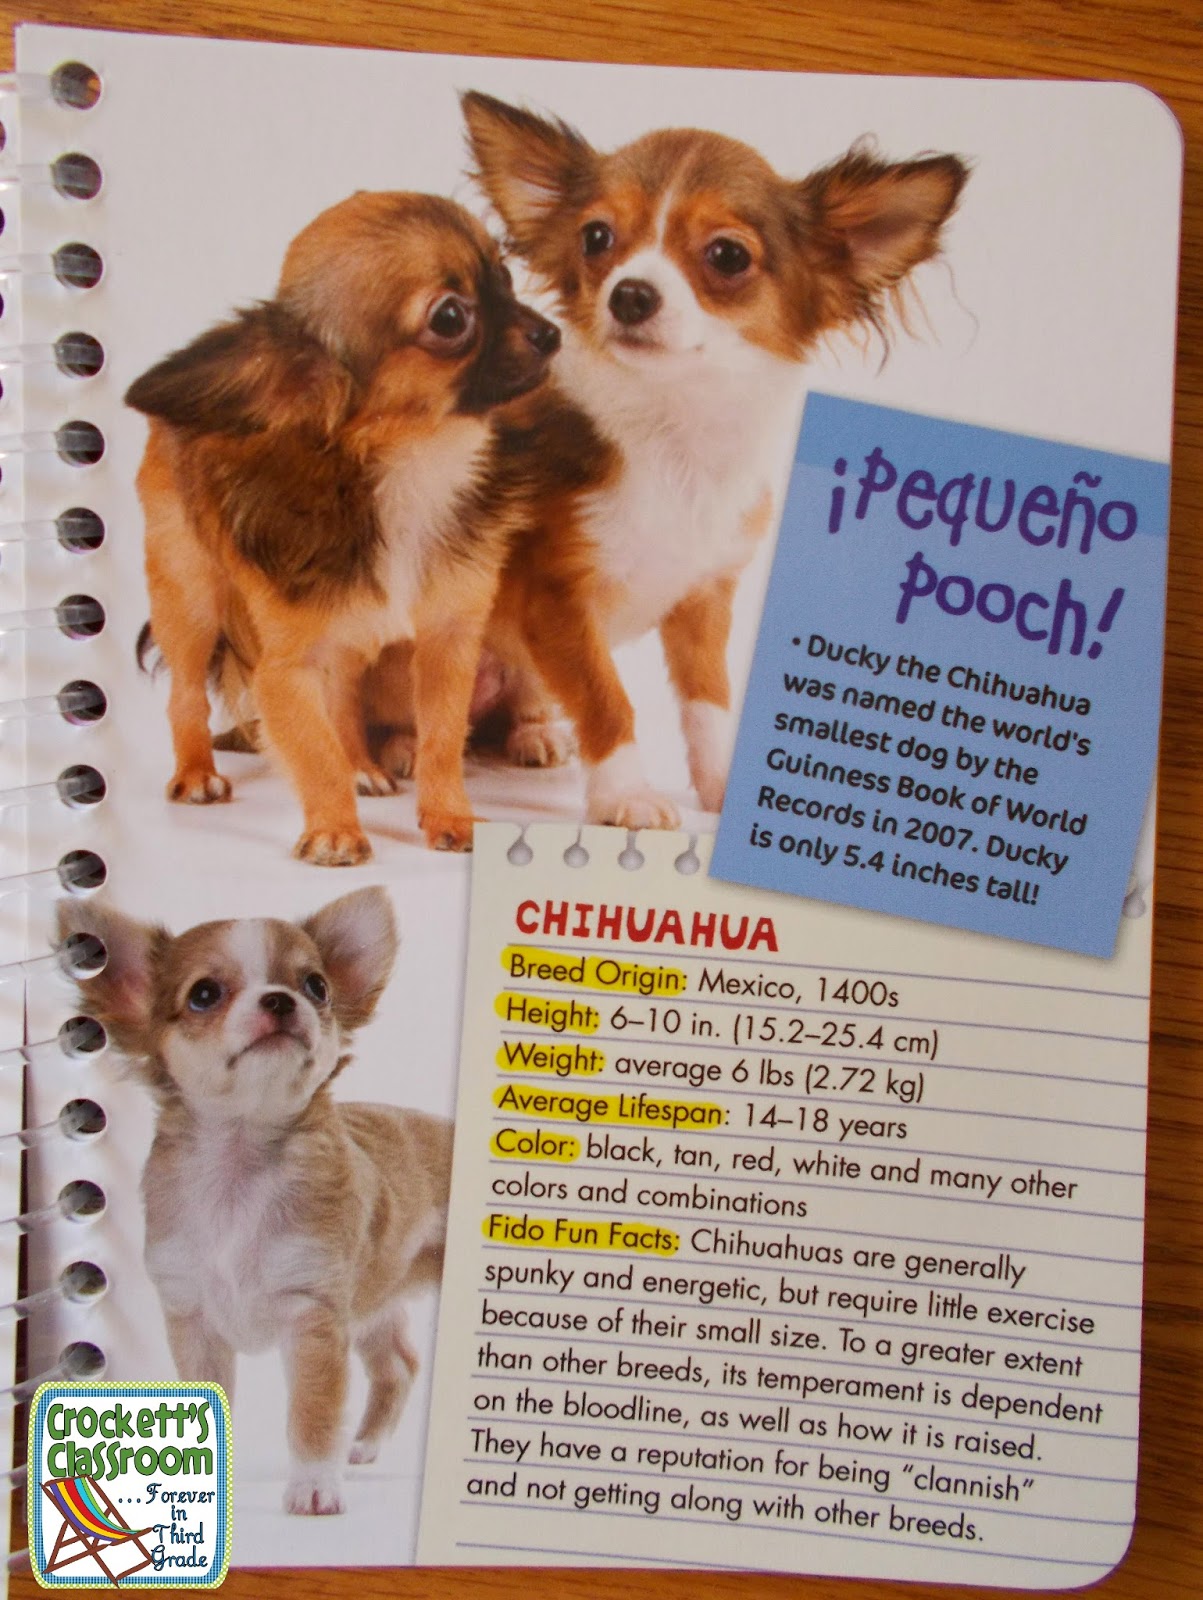 ¡Pequeño
Pooch!
• Ducky the Chihuahua
was named the world's
smallest dog by the
Guinness Book of World
Records in 2007. Ducky
is only 5.4 inches tall!
CHIHUAHUA
Breed Origin: Mexico, 1400s
Height: 6–10 in. (15.2–25.4 cm)
Weight: average 6 lbs (2.72 kg)
Average Lifespan: 14–18 years
Color: black, tan, red, white and many other
colors and combinations
Fido Fun Facts: Chihuahuas are generally
spunky and energetic, but require little exercise
because of their small size. To a greater extent
than other breeds, its temperament is dependent
on the bloodline, as well as how it is raised.
They have a reputation for being “clannish”
and not getting along with other breeds.
Crockett's
Classroom
...Forever
in
Third
Grade